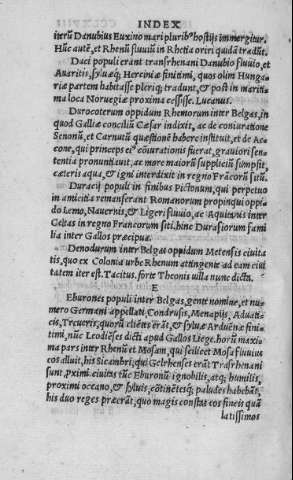 INDEX
iterū Danubius Euxino mari pluribº hostijs immergitur.
Hūc autē, et Rhenū fluuiū in Rhetia oriri quidā tradūt.
Daci populi erant transrhenani Danubio fluuio, et
Auaritis, syluaq; Herciniæ finitimi, quos olim Hungariæ
partem habitasse pleriq; tradunt, & post in maritima
loca Noruegiæ proxima cessisse. Lucanus.
Durocoterum oppidum Rhemorum inter Belgas, in
quod Galliæ concilíū Cæsar indixit, ac de coniuratione
Senonū, et Carnutū quæstionē habere instituit, et de Accone,
qui princeps eiº cōiurationis fuerat, grauiori sententia
pronuntiauit, ac more maiorū supplíciū sumpsit,
cæteris aqua, & igni interdixit in regno Frācorū sitū.
Duracij populi in finibus Pictonum, qui perpetuo
in amicitia remanserant Romanorum propinqui oppido
Lemo, Nauernis, & Ligeri fluuio, ac Aquitanis inter
Celtas in regno Francorum siti. hinc Durasiorum familia
inter Gallos præcipua.
Denodurum inter Belgas oppidum Metensis ciuitatis,
quo ex Colonia urbe Rhenum attingente ad eam ciuitatem
iter est. Tacitus. forte Theonis uilla nunc dicta.
E
Eburones populi inter Belgas, gente nomine, et numero
Germani appellati, Condrusis, Menapijs, Aduaticis,
Treueris, quorū cliētes erāt, & syluæ Arduēnæ finitimi,
nūc Leodiēses dicti apud Gallos Liege. horū maxima
pars inter Rhenū et Mosam, qui scilicet Mosa fluuius
eos alluit, his Sicambri, qui Gelrhenses erāt Trāsrhenani
sunt, ꝓximi. ciuitas tūc Eburonū ignobilis, atq; humilis,
proximi oceano, & syluis, cōtinētesq; paludes habebāt,
his duo reges præerāt, quo magis constās eos fineis quā
latissimos